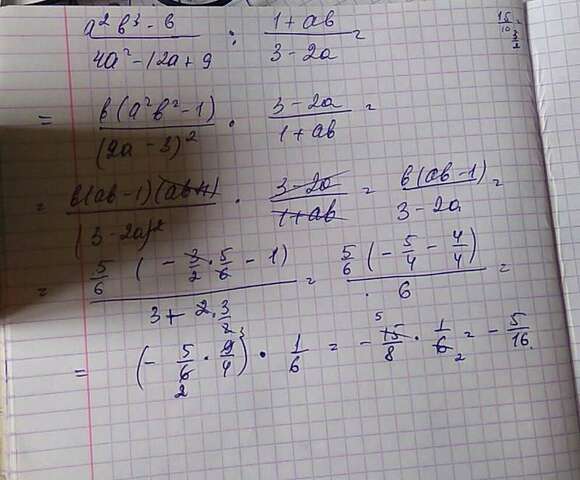 (a²b³ - b)/(4a² - 12a + 9) : (1 + ab)/(3 - 2a) =
15/10 = 3/2
= b(a²b² - 1)/(2a - 3)² · (3 - 2a)/(1 + ab) =
= b(ab - 1)(ab+1)/(3 - 2a)² · (3 - 2a)/(1 + ab) = b(ab - 1)/(3 - 2a) =
= 5/6 (- 3/2 · 5/6 - 1)/(3 + 2 · 3/2) = 5/6 (- 5/4 - 4/4)/6 =
= (- 5/6 · 9/4) · 1/6 = - 15/8 · 1/6 = - 5/16.